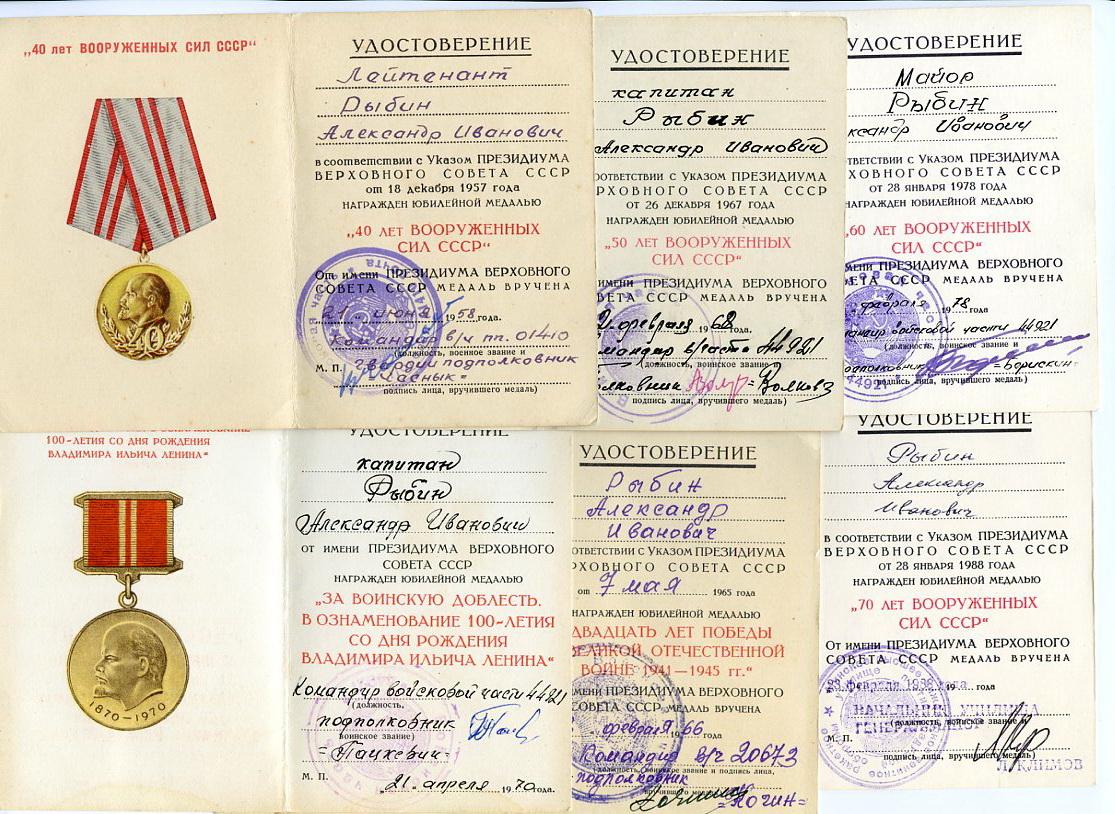 „40 лет ВООРУЖЕННЫХ СИЛ СССР“
УДОСТОВЕРЕНИЕ
Лейтенант
Рыбин
Александр Иванович
в соответствии с Указом ПРЕЗИДИУМА
ВЕРХОВНОГО СОВЕТА СССР
от 18 декабря 1957 года
НАГРАЖДЕН ЮБИЛЕЙНОЙ МЕДАЛЬЮ
„40 ЛЕТ ВООРУЖЕННЫХ
СИЛ СССР“
От имени ПРЕЗИДИУМА ВЕРХОВНОГО
СОВЕТА СССР МЕДАЛЬ ВРУЧЕНА
1958 года.
Командир в/ч пп. 01410
(должность, военное звание и
гвардии подполковник
М. П.
подпись лица, вручившего медаль)
УДОСТОВЕРЕНИЕ
капитан
Рыбин
Александр Иванович
СООТВЕТСТВИИ с Указом ПРЕЗИДИУМА
ЕРХОВНОГО СОВЕТА СССР
от 26 ДЕКАБРЯ 1967 ГОДА
НАГРАЖДЕН ЮБИЛЕЙНОЙ МЕДАЛЬЮ
„50 ЛЕТ ВООРУЖЕННЫХ
СИЛ СССР“
имени ПРЕЗИДИУМА ВЕРХОВНОГО
ВЕТА СССР МЕДАЛЬ ВРУЧЕНА
февраля 1968 года.
мандир в/части 44921
(должность, воинское звание и
олковник =Волков=
подпись лица, вручившего медаль)
УДОСТОВЕРЕНИЕ
Майор
Рыбин
ксандр Иванович
ТВЕТСТВИИ с Указом ПРЕЗИДИУМА
ХОВНОГО СОВЕТА СССР
от 28 ЯНВАРЯ 1978 ГОДА
НАГРАЖДЕН ЮБИЛЕЙНОЙ МЕДАЛЬЮ
„60 ЛЕТ ВООРУЖЕННЫХ
СИЛ СССР“
мени ПРЕЗИДИУМА ВЕРХОВНОГО
ЕТА СССР МЕДАЛЬ ВРУЧЕНА
февраля 1978 года
войсковой части 44921
(должность, воинское звание и
одполковник =Борискин=
подпись лица, вручившего медаль)
44921
100-ЛЕТИЯ СО ДНЯ РОЖДЕНИЯ
ВЛАДИМИРА ИЛЬИЧА ЛЕНИНА“
1870–1970
УДОСТОВЕРЕНИЕ
капитан
Рыбин
Александр Иванович
ОТ ИМЕНИ ПРЕЗИДИУМА ВЕРХОВНОГО
СОВЕТА СССР
НАГРАЖДЕН ЮБИЛЕЙНОЙ МЕДАЛЬЮ
„ЗА ВОИНСКУЮ ДОБЛЕСТЬ.
В ОЗНАМЕНОВАНИЕ 100-ЛЕТИЯ
СО ДНЯ РОЖДЕНИЯ
ВЛАДИМИРА ИЛЬИЧА ЛЕНИНА“
Командир войсковой части 44921
(должность,
подполковник
воинское звание)
=Пацкевич=
М. П.
„21„ апреля 1970 года.
УДОСТОВЕРЕНИЕ
Рыбин
Александр
Иванович
ОТВЕТСТВИИ с Указом ПРЕЗИДИУМА
РХОВНОГО СОВЕТА СССР
от 7 мая 1965 года
НАГРАЖДЕН ЮБИЛЕЙНОЙ МЕДАЛЬЮ
ДВАДЦАТЬ ЛЕТ ПОБЕДЫ
ВЕЛИКОЙ ОТЕЧЕСТВЕННОЙ
ВОЙНЕ 1941—1945 гг.“
мени ПРЕЗИДИУМА ВЕРХОВНОГО
СОВЕТА СССР МЕДАЛЬ ВРУЧЕНА
февраля 1966 года
Командир в/ч 20673
(должность, воинское звание и подпись лица,
подполковник
вручившего медаль)
=Когин=
УДОСТОВЕРЕНИЕ
Рыбин
Александр
Иванович
В СООТВЕТСТВИИ с Указом ПРЕЗИДИУМА
ВЕРХОВНОГО СОВЕТА СССР
от 28 ЯНВАРЯ 1988 ГОДА
НАГРАЖДЕН ЮБИЛЕЙНОЙ МЕДАЛЬЮ
„70 ЛЕТ ВООРУЖЕННЫХ
СИЛ СССР“
От имени ПРЕЗИДИУМА ВЕРХОВНОГО
СОВЕТА СССР МЕДАЛЬ ВРУЧЕНА
23 февраля 1988 года
19 года
НАЧАЛЬНИК УЧИЛИЩА
(должность, воинское звание и
М. П.
подпись лица, вручившего медаль)
КЛИМОВ